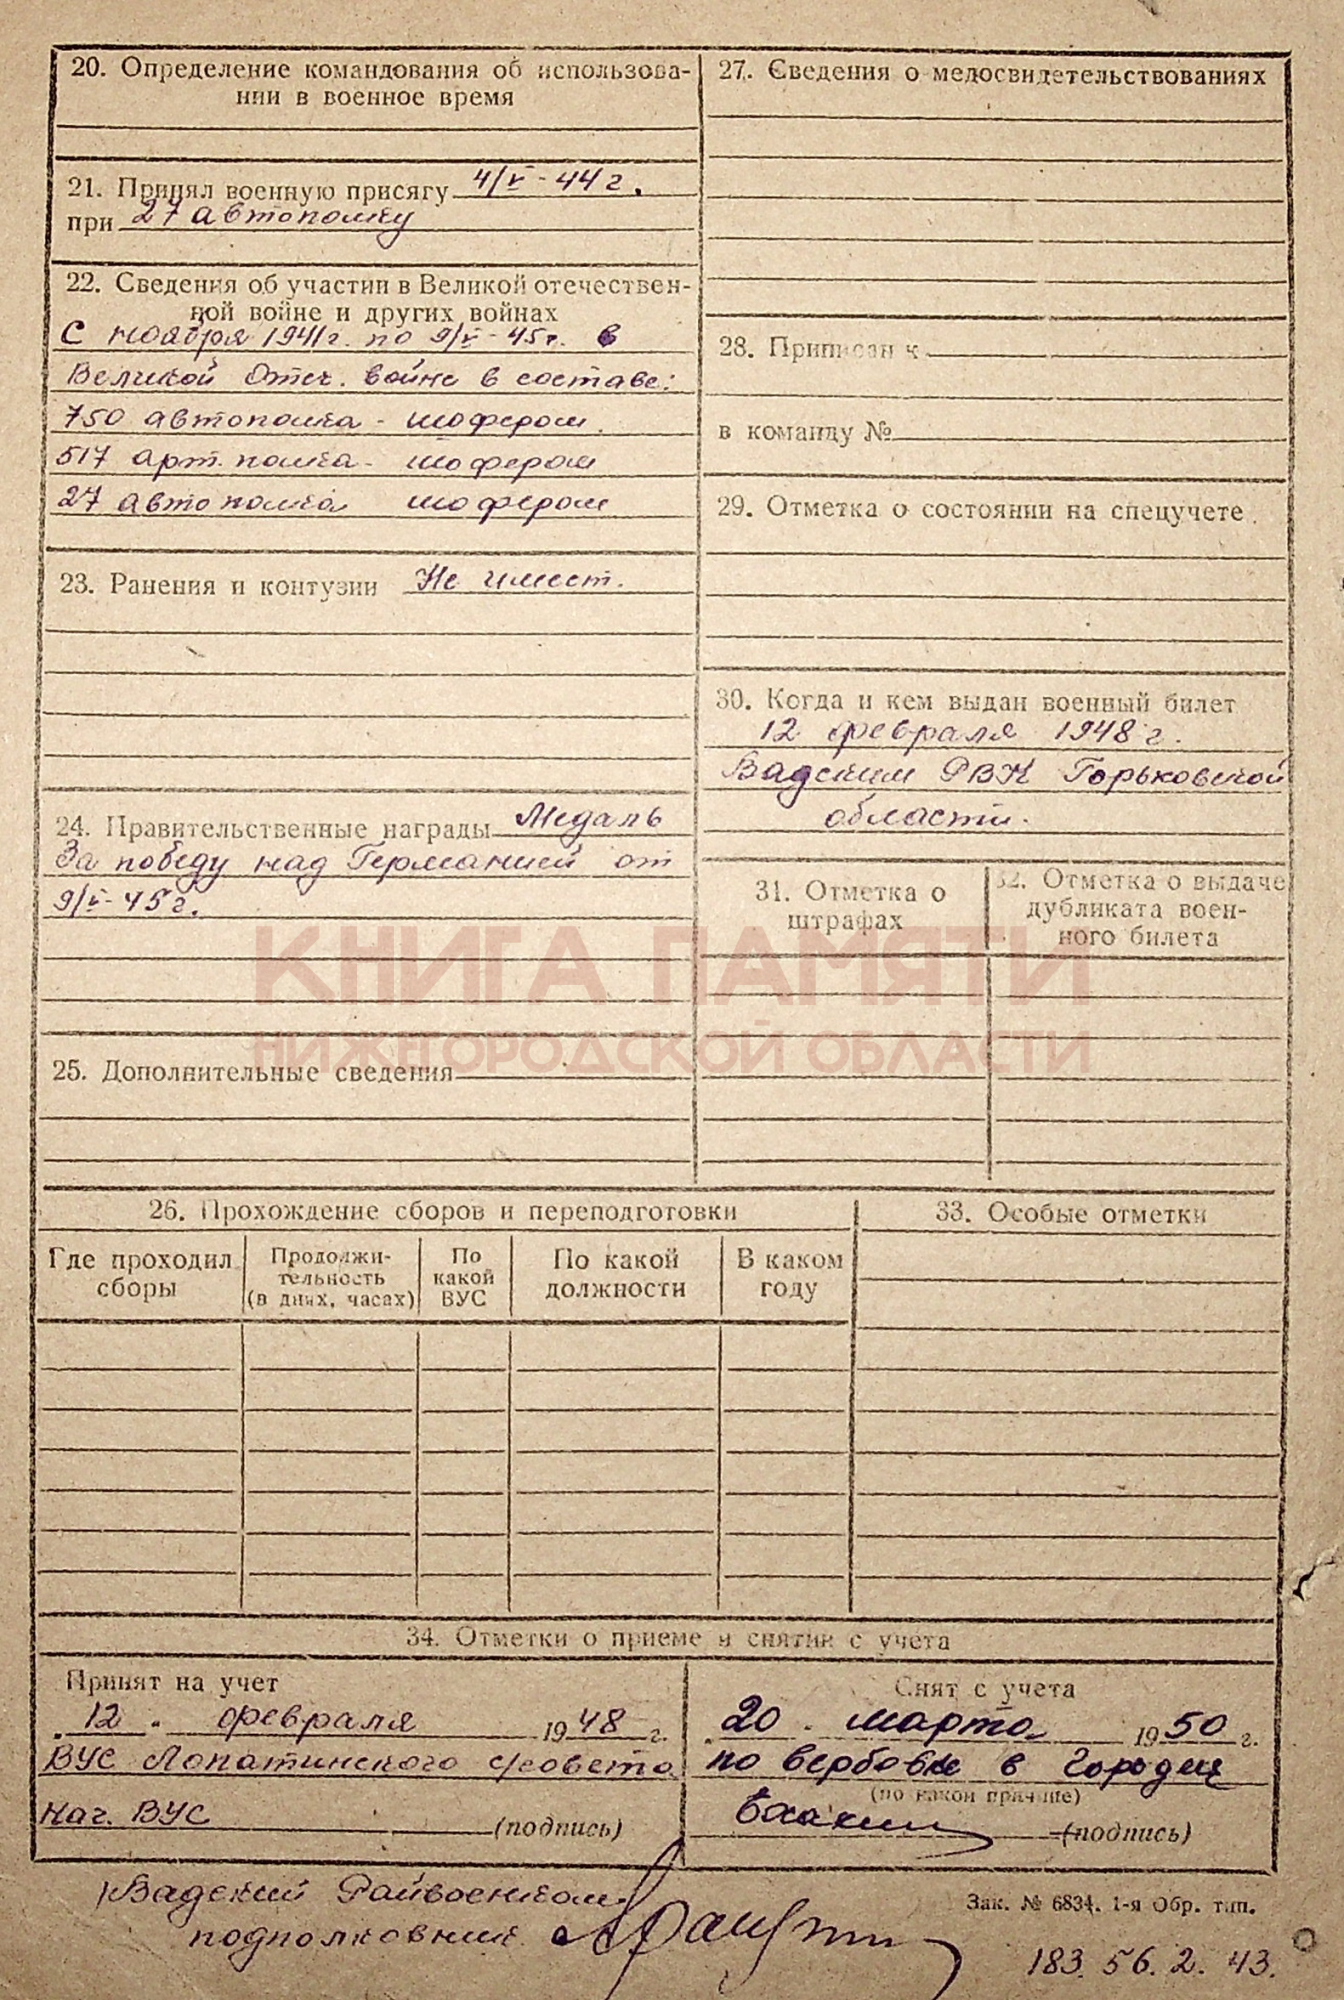 20. Определение командования об использова-
нии в военное время
21. Принял военную присягу 4/V-44 г.
при 27 автополку
22. Сведения об участии в Великой отечествен-
ной войне и других войнах
С ноября 1941 г. по 9/V-45 г. в
Великой Отеч. войне в составе:
750 автополка - шофером.
517 арт. полка - шофером
27 автополка шофером
23. Ранения и контузии Не имеет.
24. Правительственные награды Медаль
За победу над Германией от
9/V-45 г.
25. Дополнительные сведения
27. Сведения о медосвидетельствованиях
28. Приписан к
в команду №
29. Отметка о состоянии на спецучете
30. Когда и кем выдан военный билет
12 февраля 1948 г.
Вадским РВК Горьковской
области.
31. Отметка о
штрафах
32. Отметка о выдаче
дубликата воен-
ного билета
КНИГА ПАМЯТИ
НИЖГОРОДСКОЙ ОБЛАСТИ
26. Прохождение сборов и переподготовки
Где проходил
сборы
Продолжи-
тельность
(в днях, часах)
По
какой
ВУС
По какой
должности
В каком
году
33. Особые отметки
34. Отметки о приеме и снятии с учета
Принят на учет
"12" февраля 1948 г.
ВУС Лопатинского с/совета
Нач. ВУС (подпись)
Снят с учета
"20" марта 1950 г.
по вербовке в Городец
(по какой причине)
(подпись)
Вадский Райвоенком
подполковник
Зак. № 6834. 1-я Обр. тип.
183. 56. 2. 43.